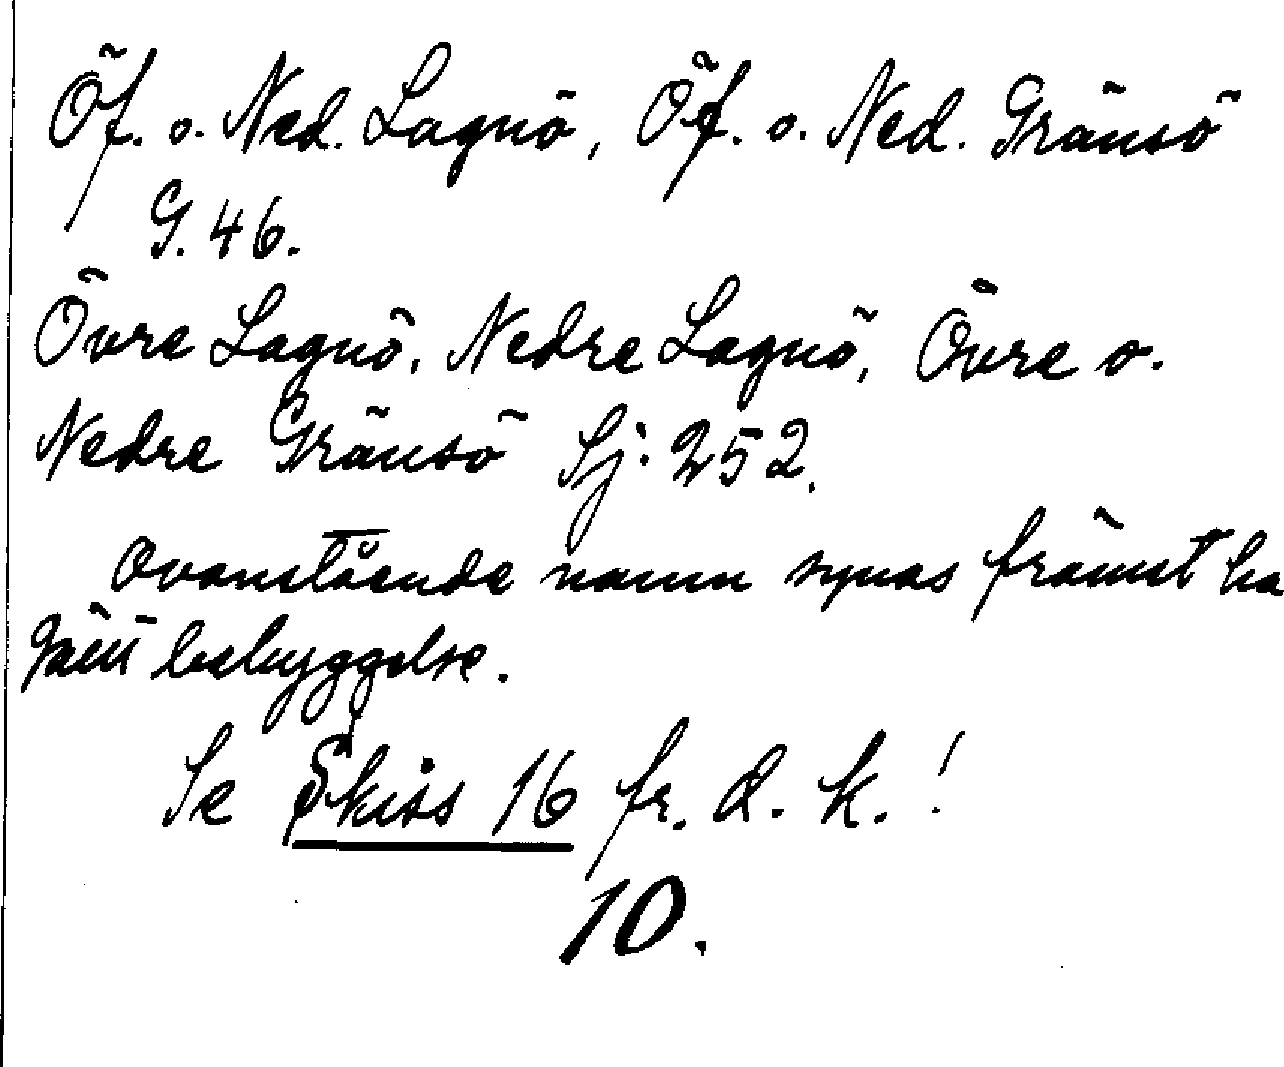 Öf. o. Ned. Lagnö, Öf. o. Ned. Gränsö
G. 46.
Övre Lagnö, Nedre Lagnö, Övre o.
Nedre Gränsö Sj: 252.
Ovanstående namn synas främst ha
gällt bebyggelse.
Se Skiss 16 fr. d. k.!
10.